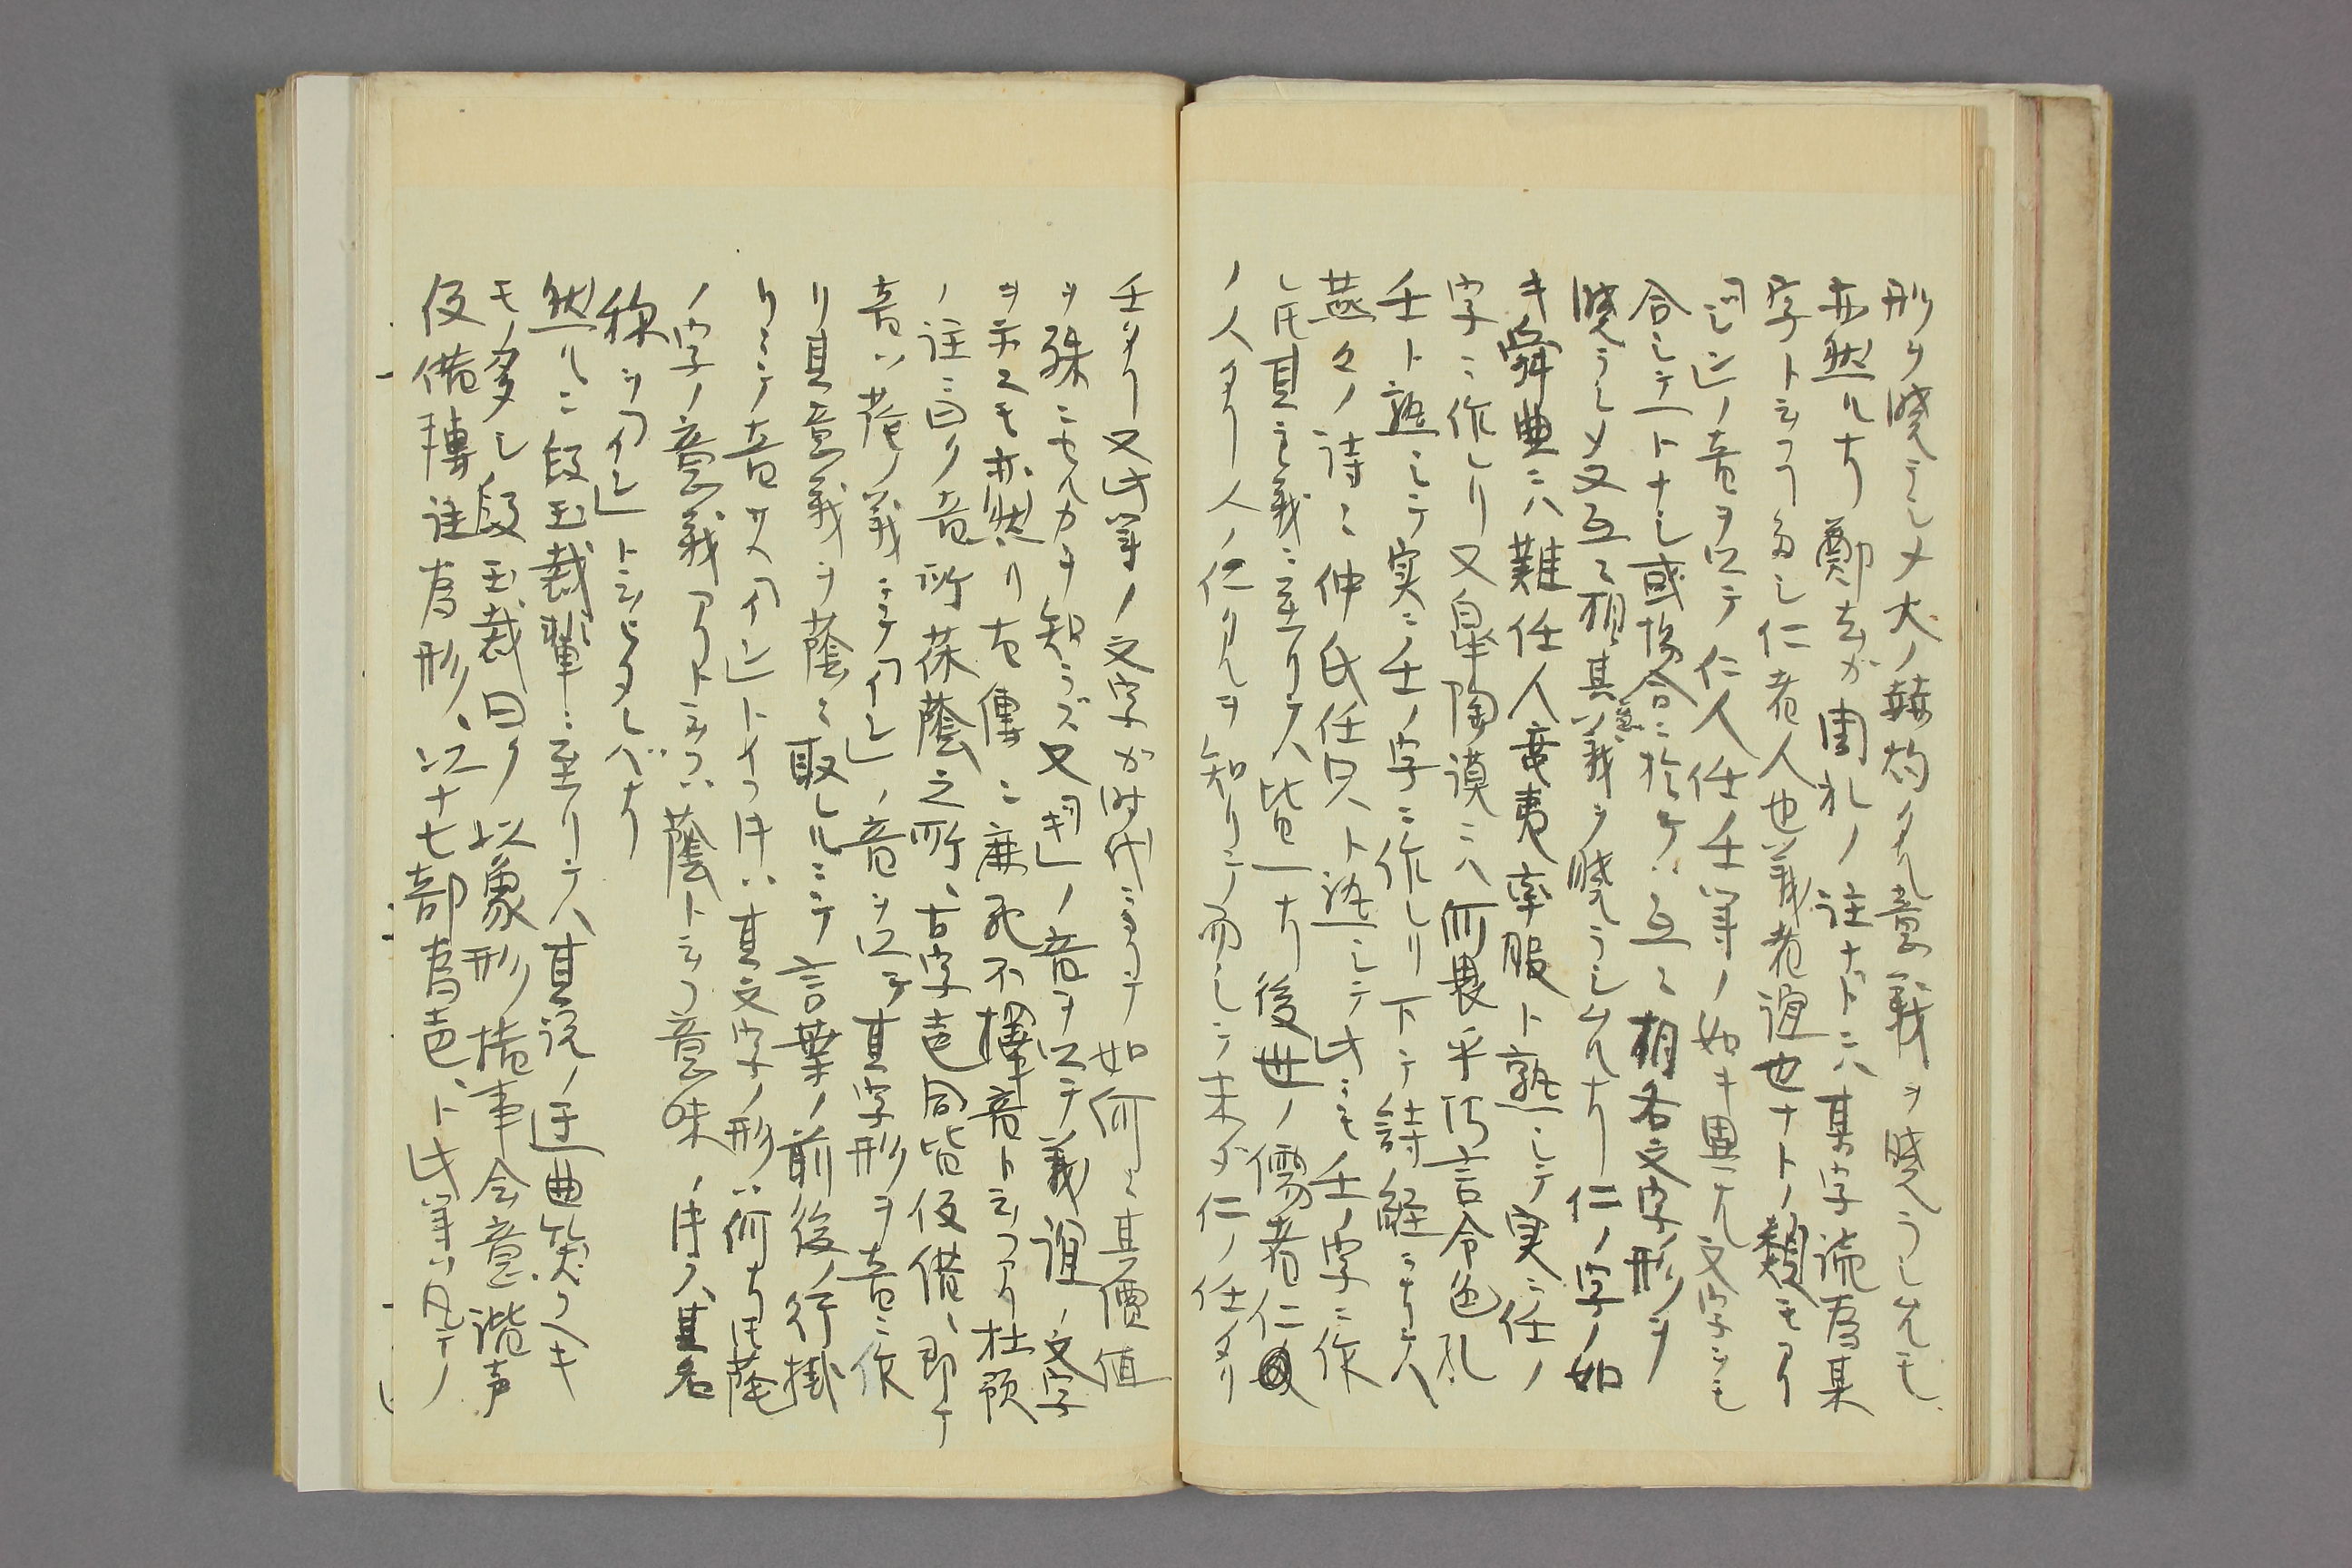 形ヲ曉ラシメ大ノ赫灼タル意義ヲ曉ラシムルモ
亦然ルナリ鄭玄ガ周礼ノ注ナドニハ某字讀為某
字ト云フ多シ仁者人也義者誼也ナトノ類モアリ
ノ音ヲ以テ仁人任壬等ノ如キ異ナル文字ヲモ
合シテ一トナシ或場合ニ於テハ互ニ相各文字ノ形ヲ
曉ラシメ又互ニ相其意義ヲ曉ラシムルナリ仁ノ字ノ如
キ舜典ニハ難任人蛮夷率服ト熟シテ実ニ任ノ
字ニ作レリ又皐陶謨ニハ何畏乎巧言令色孔
壬ト熟シテ実ニ壬ノ字ニ作レリ下テ詩経ニナリテハ
燕々ノ詩ニ仲氏任只ト熟シテ此ニモ壬ノ字ニ作
レ其意義ニ至リテハ皆一ナリ後世ノ儒者仁
ノ人タリ人ノ仁タルヲ知リテ而シテ未ダ仁ノ任タリ
壬タリ又此等ノ文字ガ時代ニヨリテ如何ニ其價値
ヲ殊ニセルカヲ知ラズ又ノ音ヲ以テ義誼ノ文字
ヲ示スモ亦然リ左傳ニ鹿死不擇音ト云フアリ杜預
ノ注ニ曰ク音所茠蔭之所、古字声同皆仮借、即チ
音ハ蔭ノ義ニテノ音ヲ以テ其字形ヲ音ニ作
リ其意義ヲ蔭ニ取レルニテ言葉ノ前後ノ行掛
リニテ音ヲトイフ時ハ其文字ノ形ハ何ナリ蔭
ノ字ノ意義アリト云フハ蔭ト云フ意味ノ時ハ其名
称ヲト云ヒタレバナリ
然ルニ段玉裁輩ニ至リテハ其説ノ迂曲笑フヘキ
モノ多シ段玉裁曰ク以象形指事会意諧声
仮借轉注為形、以十七部為声、ト此等ハ凡テノ